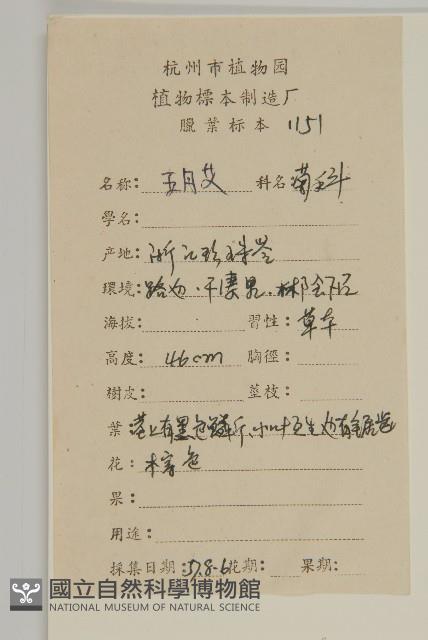 杭州市植物园
植物標本制造厂
臘葉标本 1151
名称: 五月艾 科名: 菊科
學名:
产地: 浙江珍珠岺
環境: 路边.干
海拔: 習性: 草本
高度: 46cm 胸徑:
樹皮: 莖枝:
葉 有黑色鳞片,小叶互生边有
花: 木 色
果:
用途:
採集日期: 57.8-6 花期: 果期:
國立自然科學博物館
NATIONAL MUSEUM OF NATURAL SCIENCE